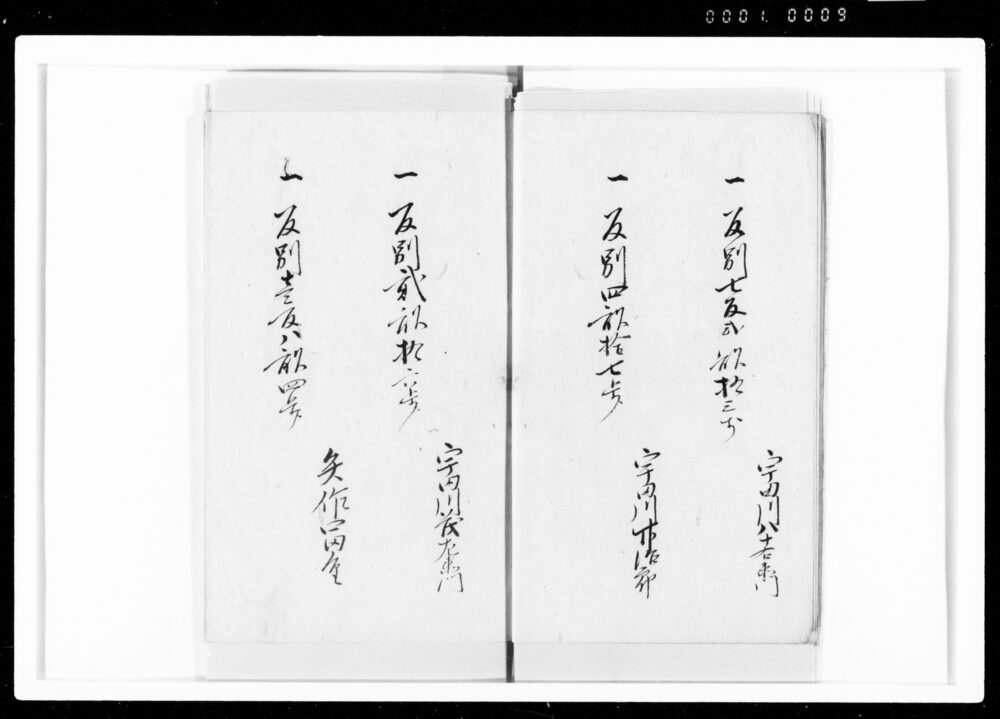 0001. 0009
一 反別七反弐畝拾三歩
宇田川八十右衛門
一 反別四畝拾七歩
宇田川
一 反別弐畝拾六歩
宇田川茂左衛門
一 反別壱反八畝四歩
矢作